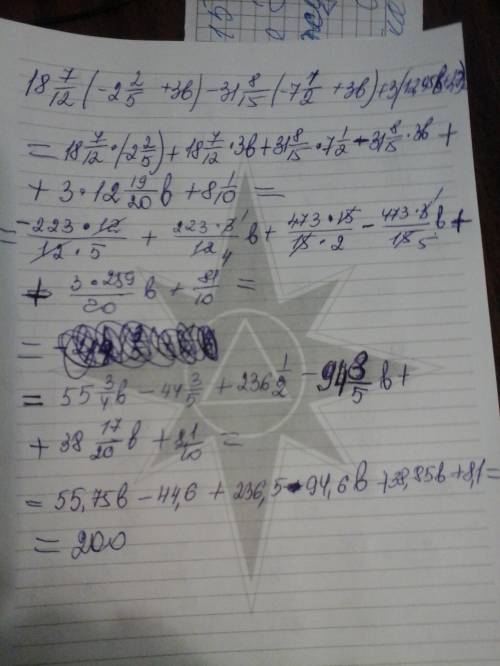 18 7/12 (-2 2/5 + 3в) - 31 8/15 (-7 7/2 + 3в) + 3(12,95в+2,7)
= 18 7/12 · (-2 2/5) + 18 7/12 · 3в + 31 8/15 · 7 1/2 - 31 8/15 · 3в +
+ 3 · 12 19/20 в + 8 1/10 =
= -223·12/12·5 + 223·3/12 4 в + 473·15/15·2 - 473·3/15 5 в +
+ 3·259/20 в + 81/10 =
=
= 55 3/4 в - 44 3/5 + 236 1/2 - 94 3/5 в +
+ 38 17/20 в + 81/10 =
= 55,75в - 44,6 + 236,5 - 94,6в + 38,85в + 8,1 =
= 200